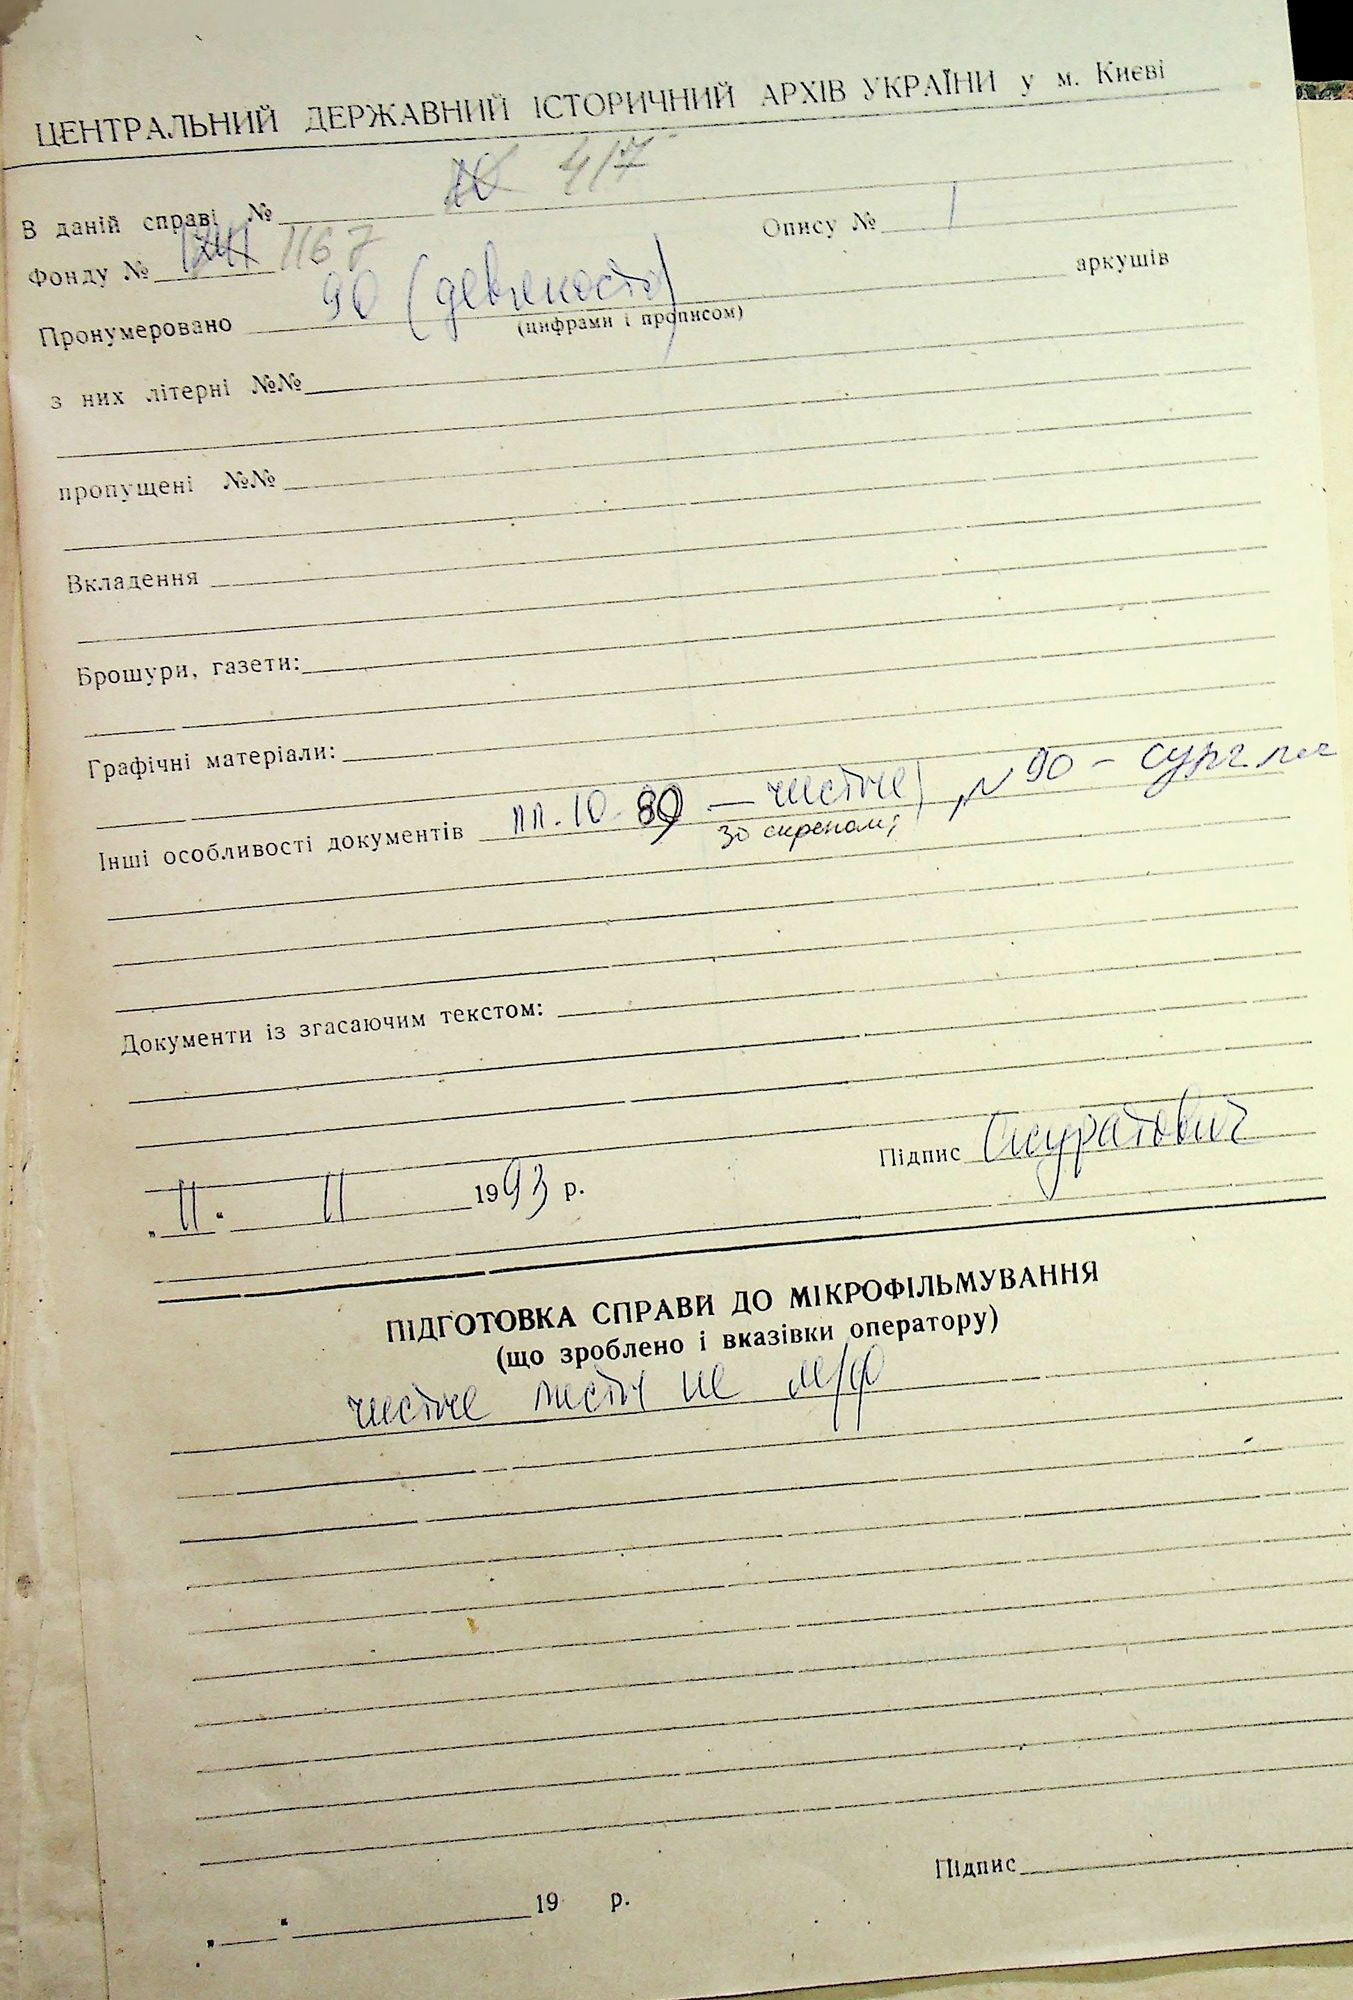 ЦЕНТРАЛЬНИЙ ДЕРЖАВНИЙ ІСТОРИЧНИЙ АРХІВ УКРАЇНИ у м. Києві
В даній справі № 417
Опису № 1
Фонду № 1167
Пронумеровано 90 (девяносто) аркушів
(цифрами і прописом)
з них літерні №№
пропущені №№
Вкладення
Брошури, газети:
Графічні матеріали:
Інші особливості документів лл. 10-89 — чистые,
л 90 -
Документи із згасаючим текстом:
Підпис Скуратович
„11“ 11 1993 р.
ПІДГОТОВКА СПРАВИ ДО МІКРОФІЛЬМУВАННЯ
(що зроблено і вказівки оператору)
чистые листы не м/ф
Підпис
„ “ 19 р.